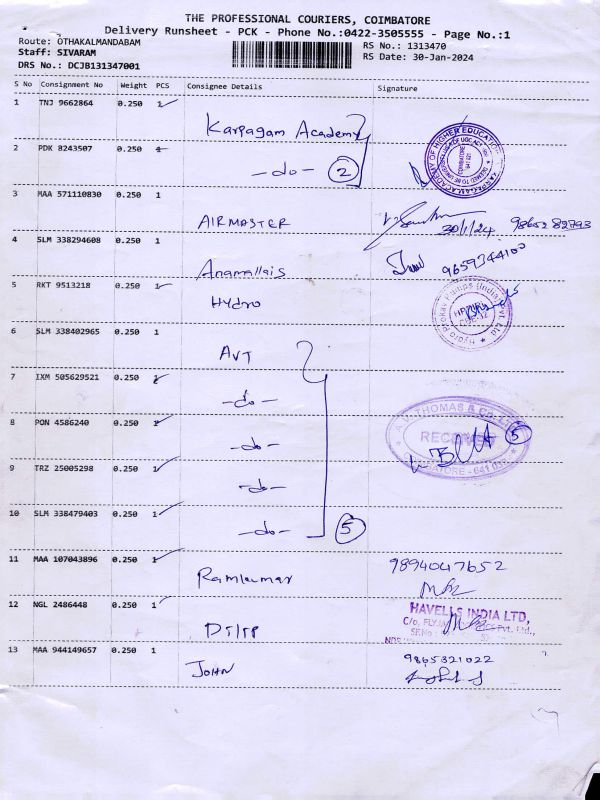 THE PROFESSIONAL COURIERS, COIMBATORE
Delivery Runsheet - PCK - Phone No.:0422-3505555 - Page No.:1
Route: OTHAKALMANDABAM
RS No.: 1313470
Staff: SIVARAM
RS Date: 30-Jan-2024
DRS No.: DCJB131347001
S No Consignment No Weight PCS Consignee Details Signature
1 TNJ 9662864 0.250 1
Karpagam Academy
2 PDK 8243507 0.250 1
-do- 2
3 MAA 571110830 0.250 1
AIRMASTER
30/1/24 9865282793
4 SLM 338294608 0.250 1
Anamallais
9659344100
5 RKT 9513218 0.250 1
Hydro
6 SLM 338402965 0.250 1
AVT
7 IXM 505629521 0.250 1
-do-
8 PON 4586240 0.250 1
-do-
THOMAS & CO.
RECEIVED
COIMBATORE - 641
5
9 TRZ 25005298 0.250 1
-do-
10 SLM 338479403 0.250 1
-do- 5
11 MAA 107043896 0.250 1
Ramkumar
9894047652
12 NGL 2486448 0.250 1
Dilip
HAVELLS INDIA LTD,
C/o. Pvt. Ltd.,
13 MAA 944149657 0.250 1
JOHN
9865321022